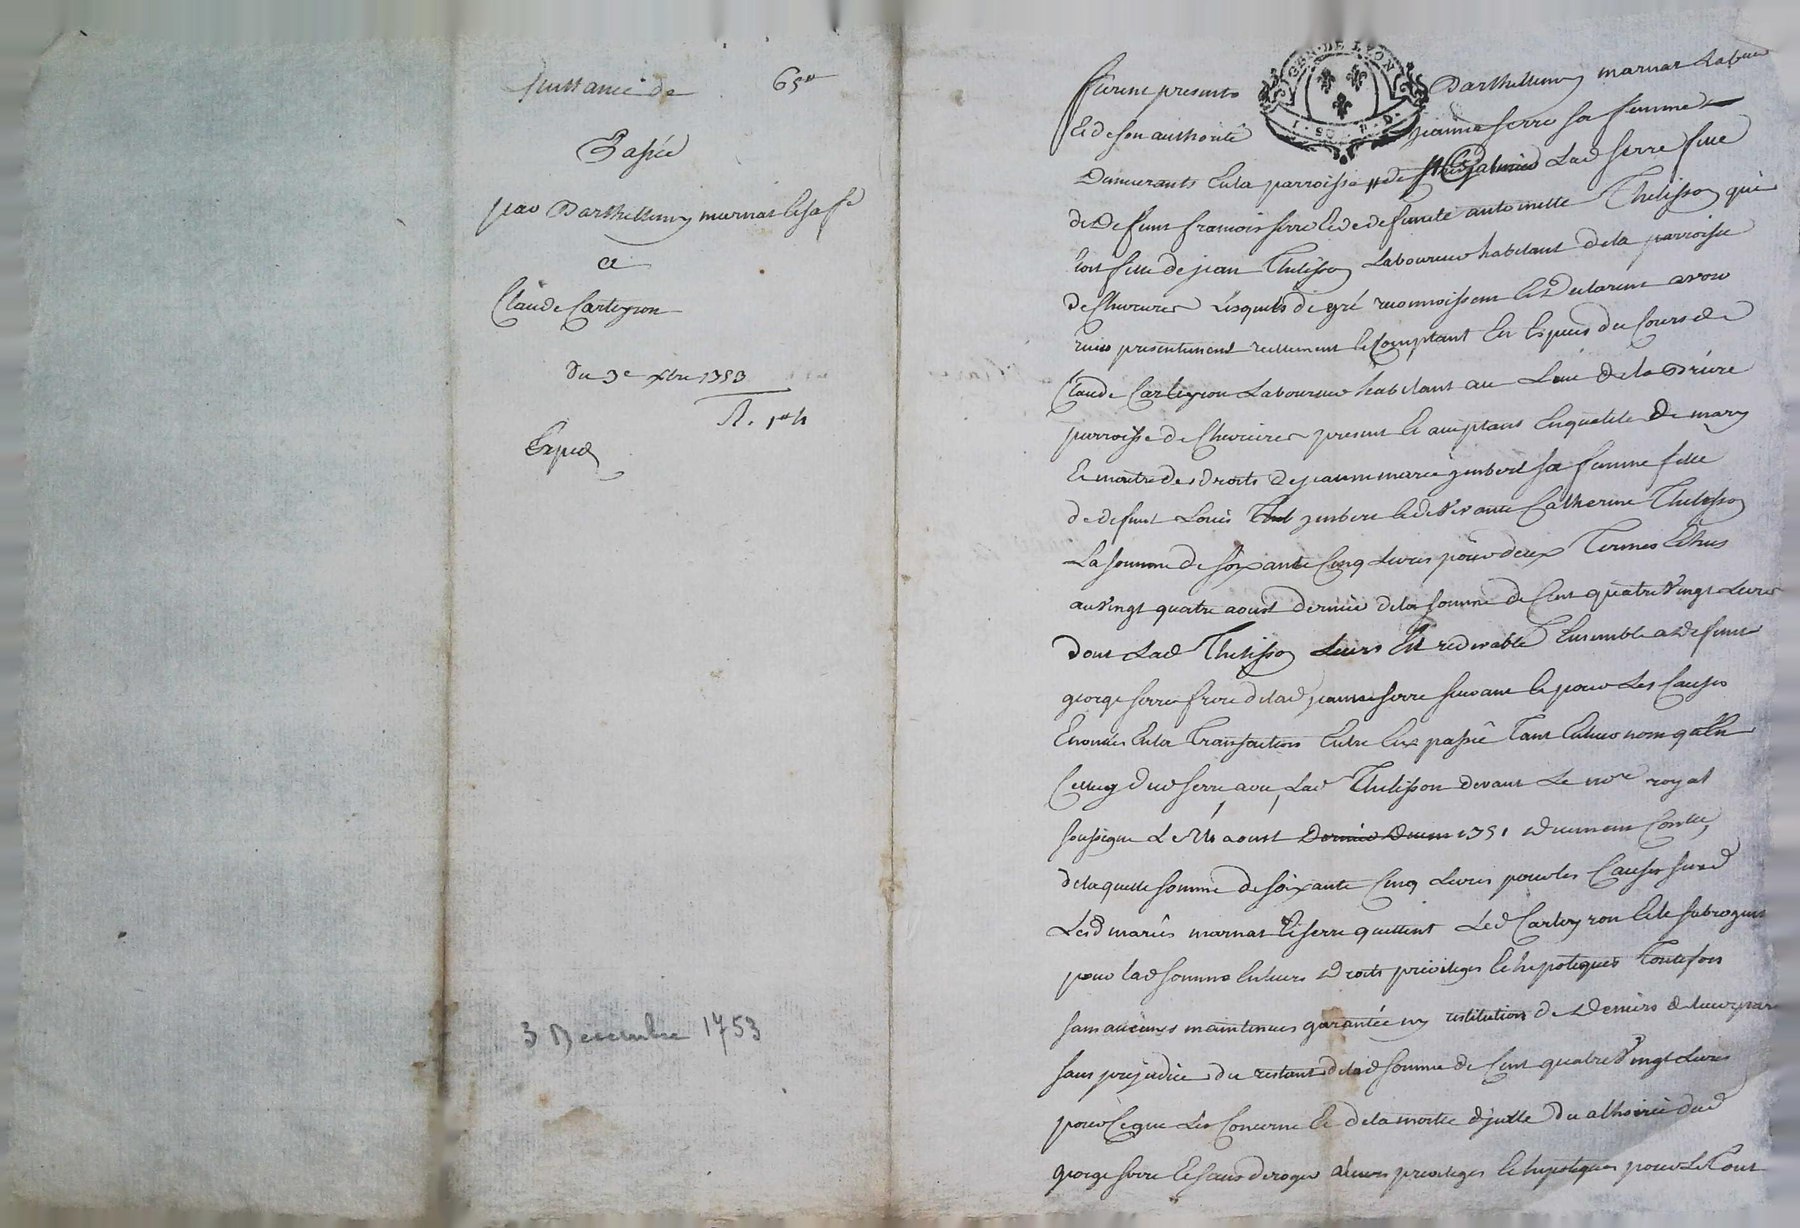 quittance de 65#
Passée
par Barthellemy marnat et sa fe
a
Claude Carteyron
du 3e xbre 1753
Exped
3 Decembre 1753
GEN. DE LYON
furent presents Barthellemy marnat Labour
et de son authorité jeanne serre sa femme
Demeurants en la parroisse de Lad serre fille
de Defunt francois serre et de defunte antoinette Thelisson qui
étoit fille de jean Thelisson Laboureur habitant de la parroisse
de Chevrieres Lesquels de gré reconnoissent et Declarent avoir
receu presentement reellement et Comptant en Especes du Cours de
Claude Carteyron Laboureur habitant au Lieu de la
parroisse de Chevrieres present et acceptant en qualité de mary
et maitre des droits de jeanne marie jmbert sa femme fille
de defunt Louis jmbert et de vivante Catherine Thelisson
La somme de soixante Cinq Livres pour deux Termes Echus
au vingt quatre aoust dernier de la somme de Cent quatre vingt Livres
dont Lad Thelisson Leurs Est redevable Ensemble a defunt
george serre frere de lad jeanne serre suivant et pour Les Causes
Enoncées En la Transaction Entre Eux passée Tant En leur nom qu'en
Celluy dud serre avec Lad Thelisson devant Le nore royal
soussigné Le aoust 1751 duement Conllé
de laquelle somme de soixante Cinq Livres pour les Causes susd
Lesd mariés marnat et serre quittent Led Carteyron et le subrogent
pour lad somme En leurs Droits privileges et hipoteques Toutefois
sans aucunes maintenues garantée ny restitution de Deniers de leur part
sans prejudice du restant de lad somme de Cent quatre vingt Livres
pour Ce que Les Concerne et de la moitié d'jcelle du a l'hoirie dud
george serre et sans deroger a leurs privileges et hipoteques pour Le tout